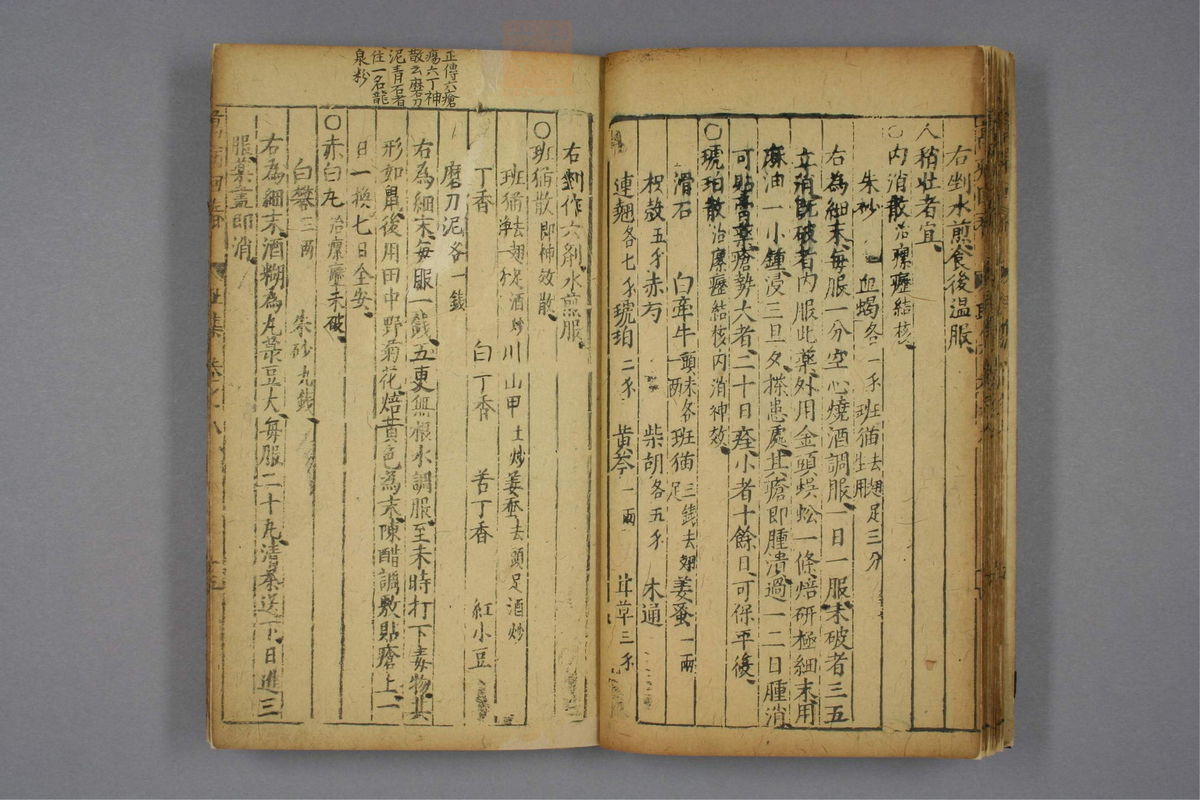 右剉水煎食後温服
人稍壯者宜
○内消散治瘰癧結核
朱砂 血蝎各一錢 班猫去翅足三分生用
右為細末每服一分空心燒酒調服一日一服未破者三五
立消既破者内服此藥外用金頭蜈蚣一條焙研極細末用
麻油一小鍾浸三旦夕搽患處其瘡即腫潰過一二日腫消
可貼膏藥瘡勢大者二十日痊小者十餘日可保平復
○琥珀散治瘰癧結核内消神效
滑石 白牽牛頭末各一兩 班猫三錢去翅足 姜蚕一兩
枳殼五錢 赤芍 柴胡各五錢 木通
連翹各七錢 琥珀二錢 黄芩一兩 甘草三錢
右剉作六劑水煎服
○班猫散即神效散
班猫去翅足酒炒淨一錢 川山甲土炒 姜蚕去頭足酒炒
丁香 白丁香 苦丁香 紅小豆
磨刀泥各一錢
右為細末每服一錢五更無根水調服至未時打下毒物其
形如鼠後用田中野菊花焙黄色為末陳醋調敷貼瘡上一
日一換七日全安
○赤白丸治瘰癧未破
白礬三兩 朱砂九錢
右為細末酒糊為丸菉豆大每服二十丸清茶送下日進三
服藥盡即消
正傳六瘡
瘍六丁神
散云磨刀
泥青石者
佳一名龍
泉粉